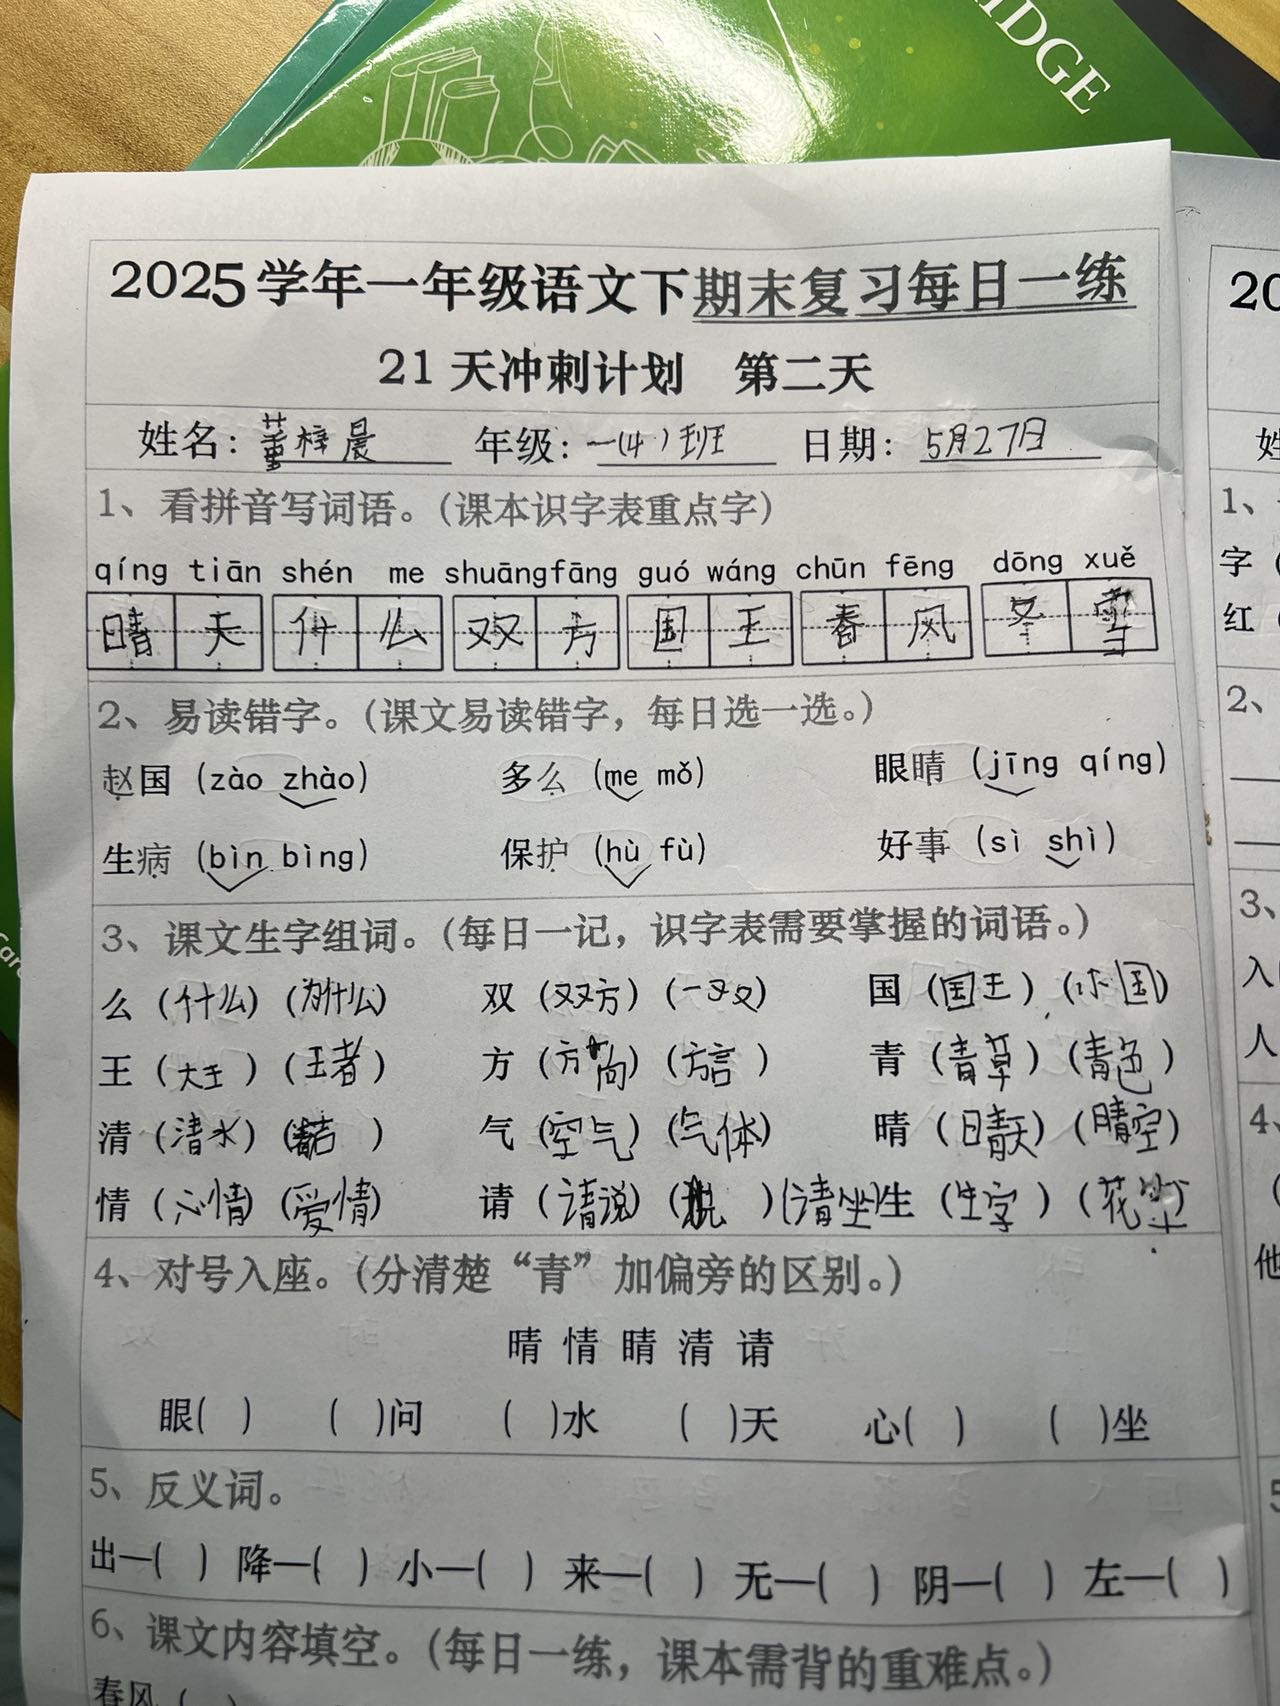 IDGE
2025学年一年级语文下期末复习每日一练
21天冲刺计划 第二天
姓名：董梓晨 年级：一（4）班 日期：5月27日
1、看拼音写词语。（课本识字表重点字）
qíng tiān shén me shuāng fāng guó wáng chūn fēng dōng xuě
晴天 什么 双方 国王 春风 冬雪
2、易读错字。（课文易读错字，每日选一选。）
赵国（zào zhào） 多么（me mǒ） 眼睛（jīng qíng）
生病（bìn bìng） 保护（hù fù） 好事（sì shì）
3、课文生字组词。（每日一记，识字表需要掌握的词语。）
么（什么）（为什么） 双（双方）（一双） 国（国王）（国）
王（大王）（王者） 方（方向）（方言） 青（青草）（青色）
清（清水）（） 气（空气）（气体） 晴（晴天）（晴空）
情（心情）（爱情） 请（请说）（）（请坐）生（生字）（花生）
4、对号入座。（分清楚“青”加偏旁的区别。）
晴 情 睛 清 请
眼( ) ( )问 ( )水 ( )天 心( ) ( )坐
5、反义词。
出—( ) 降—( ) 小—( ) 来—( ) 无—( ) 阴—( ) 左—( )
6、课文内容填空。（每日一练，课本需背的重难点。）
春风（ ）
20
姓
1、
字（
红（
2、
3、
入
人
4、
他
5